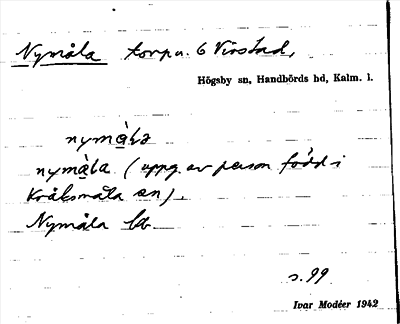 Nymåla torp u. 6 Virstad,
Högsby sn, Handbörds hd, Kalm. l.
nymå̀la
nymå̀la (uppg. av person född i
Kråksmåla sn).
Nymåla kb
s. 99
Ivar Modéer 1942